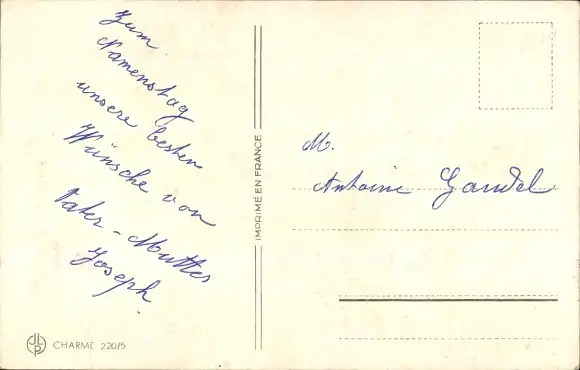 Zum
Namenstag
unsere besten
Wünsche von
Vater - Mutter
Joseph
IMPRIMÉ EN FRANCE
M.
Antoine Gandel
JLP
CHARME 220/5